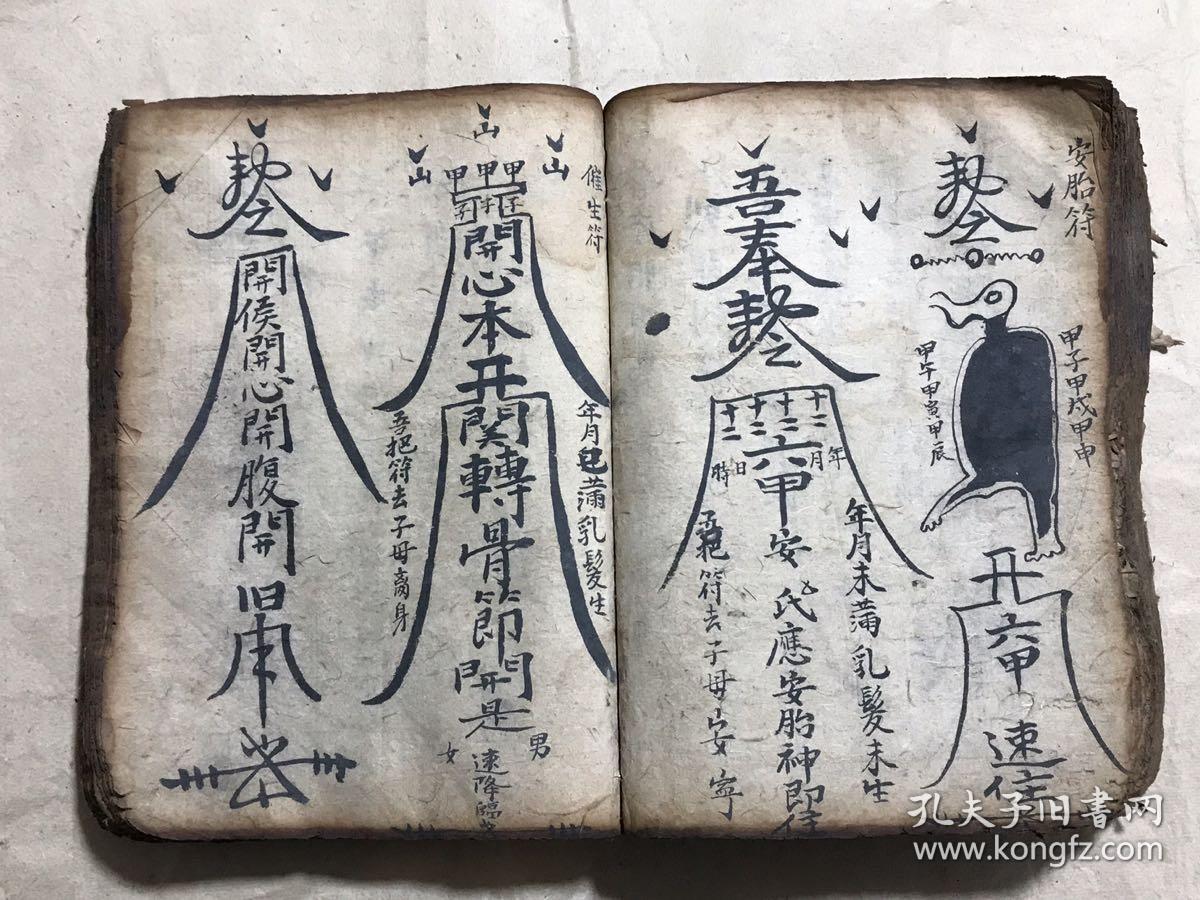 安胎符
勅令
甲子甲戌甲申
甲午甲寅甲辰
六甲
速住
年月未滿乳髮未生
吾奉勅令
十二年
十二月
十二日
十二時
六甲安
氏應安胎神即住
符去子母安寧
催生符
山
山
山
甲甲甲
子子子
開心本
年月已滿乳髮生
關轉骨節開是
男
女
速降臨
吾把符去子母离身
勅令
開侯開心開腹開
孔夫子旧书网
www.kongfz.com